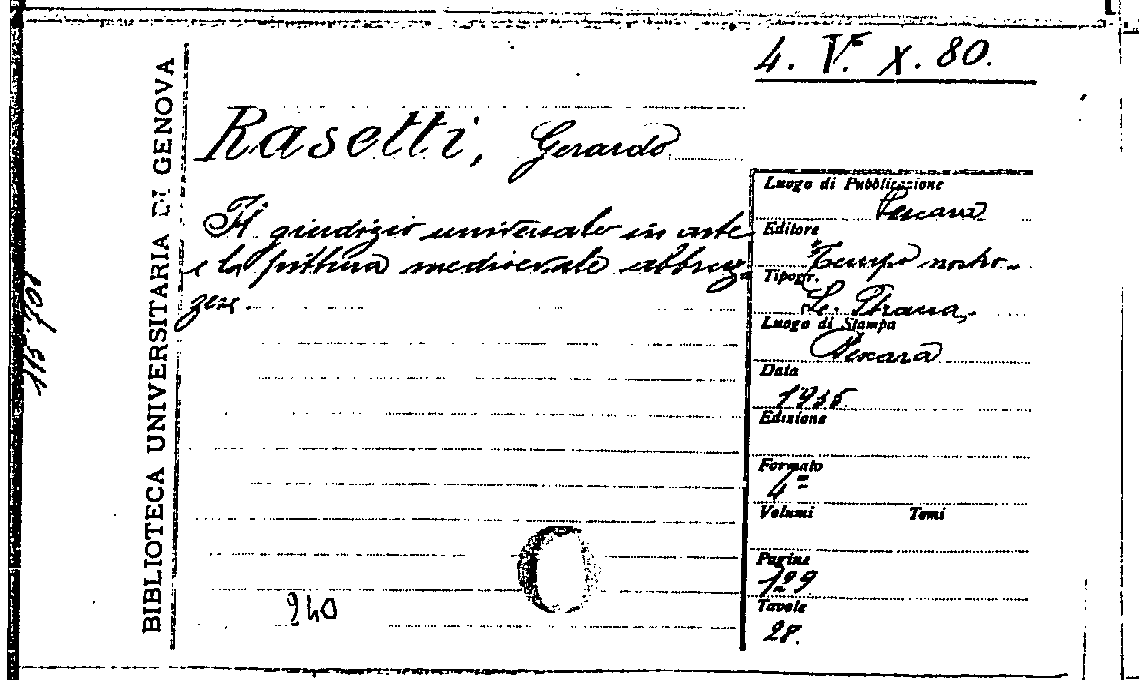 4. V.F X. 80.
BIBLIOTECA UNIVERSITARIA DI GENOVA
Rasetti, Gerardo
Il giudizio universale in arte
e la pittura medioevale abbruz
zese.
240
Luogo di Pubblicazione
Pescara
Editore
Tempo nostro
Tipogr.
Luogo di Stampa
Pescara
Data
1935
Edizione
Formato
4°
Volumi Tomi
Pagine
129
Tavole
28.